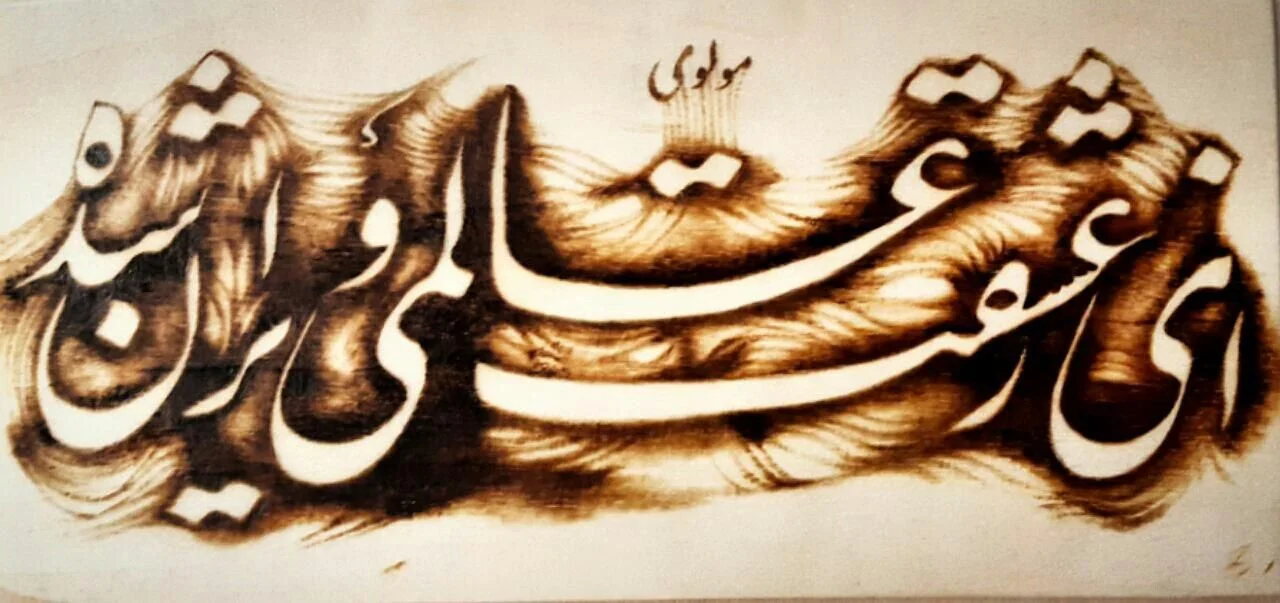 مولوی
ای ز عشقت عالمی ویران شده